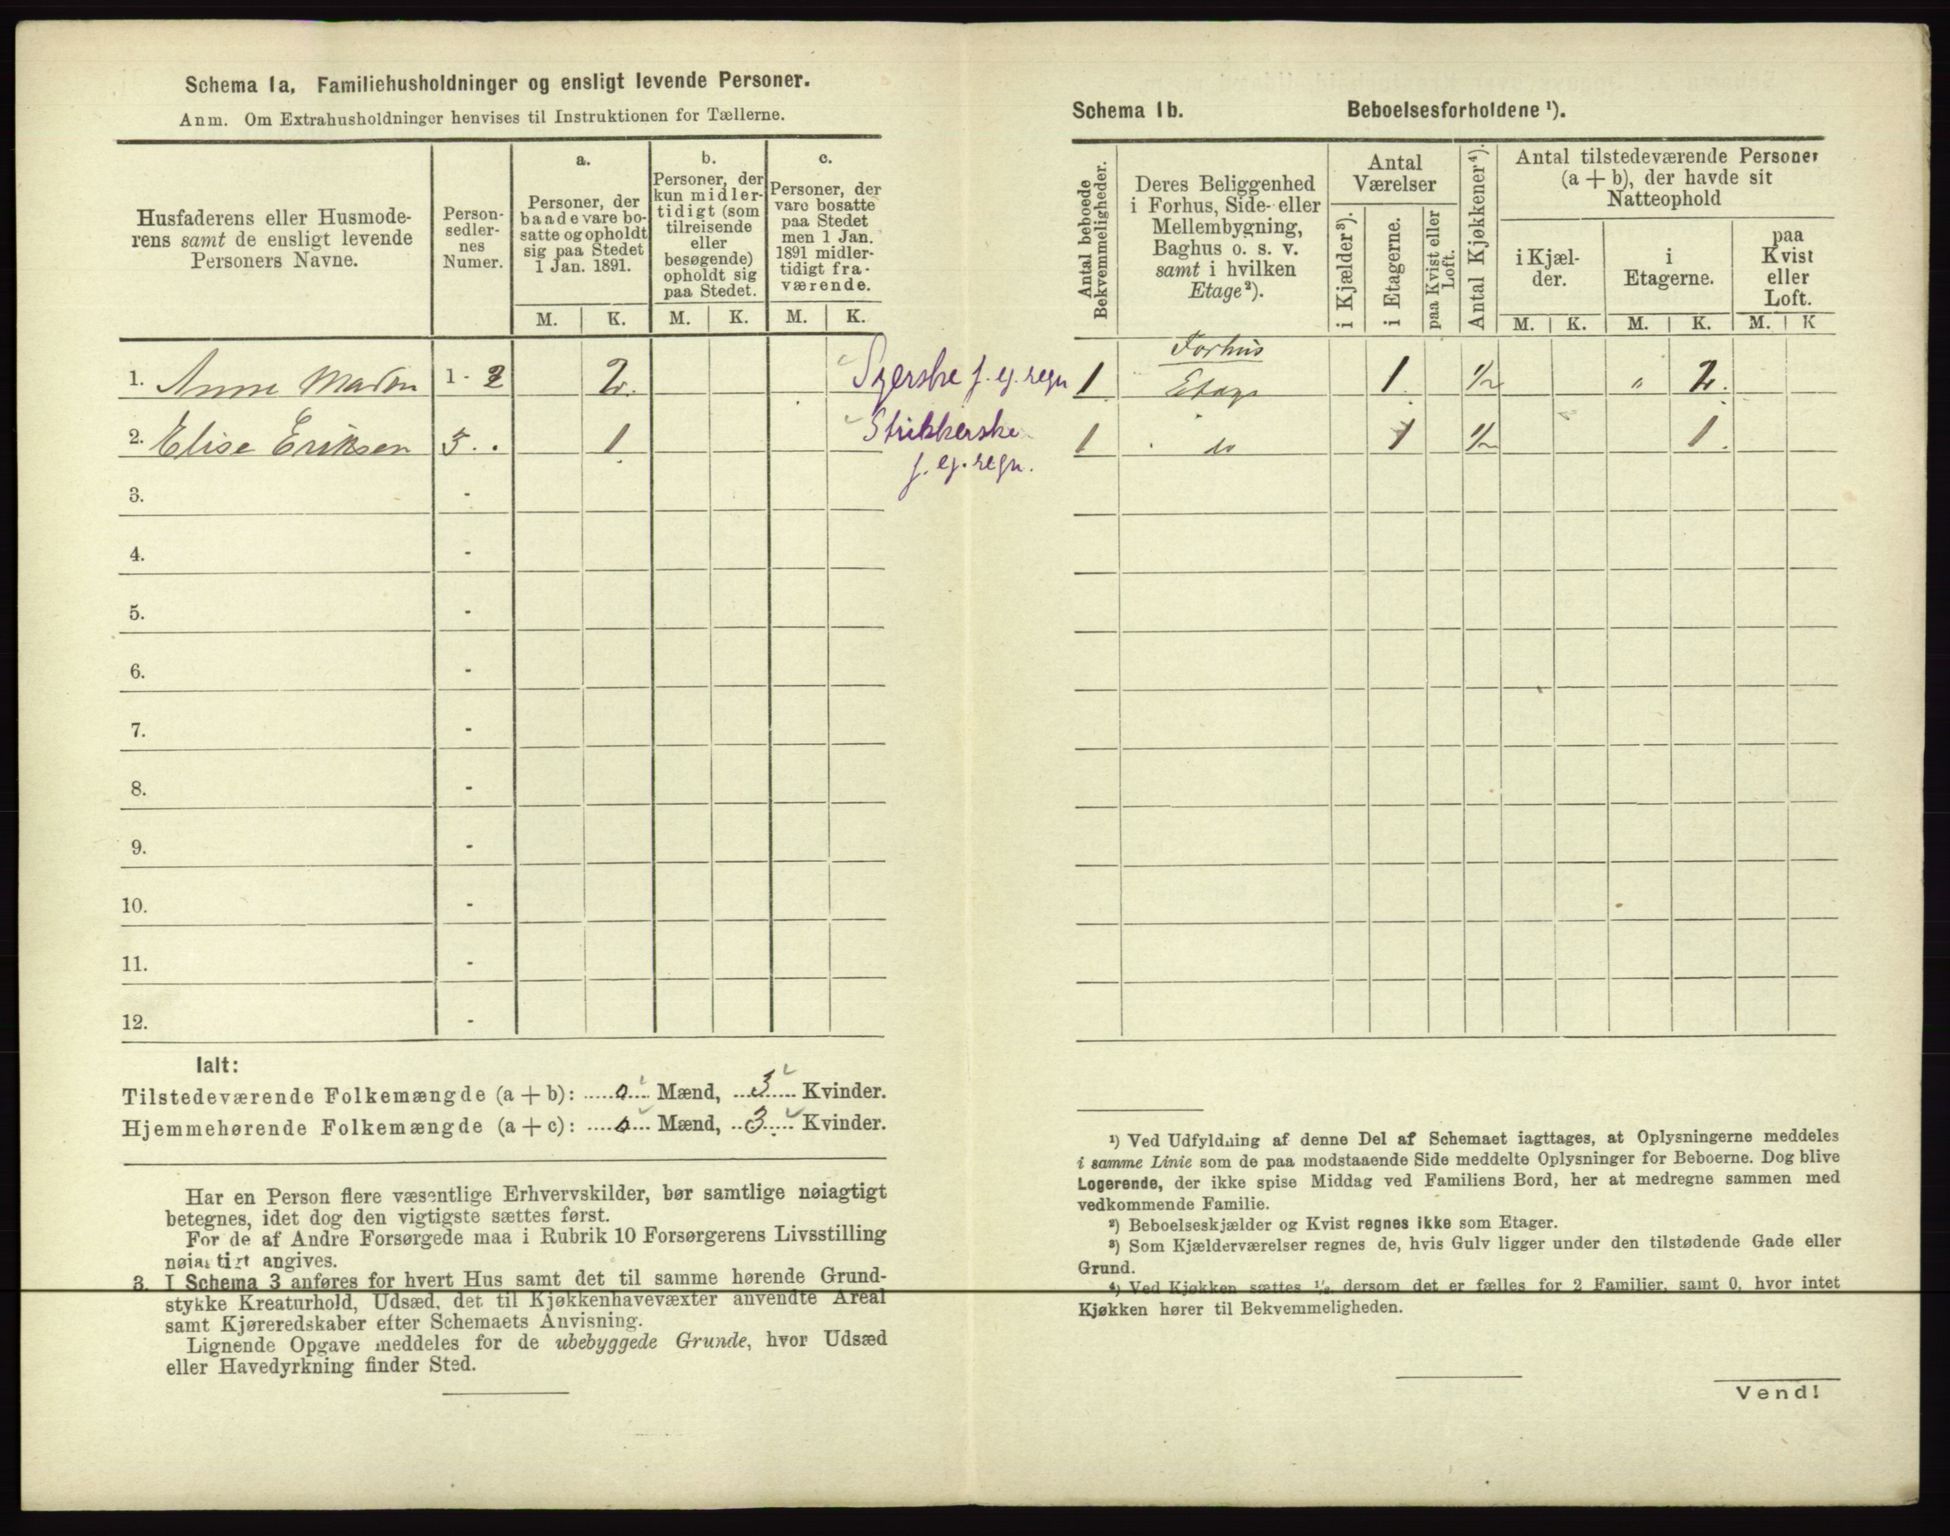 Schema 1a, Familiehusholdninger og ensligt levende Personer.
Anm. Om Extrahusholdninger henvises til Instruktionen for Tællerne.
Husfaderens eller Husmode-
rens samt de ensligt levende
Personers Navne.
Person-
sedler-
nes
Numer.
a.
Personer, der
baade vare bo-
satte og opholdt
sig paa Stedet
1 Jan. 1891.
b.
Personer, der
kun midler-
tidigt (som
tilreisende
eller
besøgende)
opholdt sig
paa Stedet.
c.
Personer, der
vare bosatte
paa Stedet
men 1 Jan.
1891 midler-
tidigt fra-
værende.
M. K. M. K. M. K.
1. Anne 1 - 2 2 Syerske f. eg. regn
2. Elise Eriksen 3 . . 1 Strikkerske
f. eg. regn.
3. -
4. -
5. -
6. -
7. -
8. -
9. -
10. -
11. -
12. -
Ialt:
Tilstedeværende Folkemængde (a + b): 0 Mænd, 3 Kvinder.
Hjemmehørende Folkemængde (a + c): 0 Mænd, 3 Kvinder.
Har en Person flere væsentlige Erhvervskilder, bør samtlige nøiagtigt
betegnes, idet dog den vigtigste sættes først.
For de af Andre Forsørgede maa i Rubrik 10 Forsørgerens Livsstilling
nøiagtigt angives.
3. I Schema 3 anføres for hvert Hus samt det til samme hørende Grund-
stykke Kreaturhold, Udsæd, det til Kjøkkenhavevæxter anvendte Areal
samt Kjøreredskaber efter Schemaets Anvisning.
Lignende Opgave meddeles for de ubebyggede Grunde, hvor Udsæd
eller Havedyrkning finder Sted.
Schema 1b. Beboelsesforholdene ¹).
Antal beboede
Bekvemmeligheder.
Deres Beliggenhed
i Forhus, Side- eller
Mellembygning,
Baghus o. s. v.
samt i hvilken
Etage²).
Antal
Værelser
i Kjælder³).
i Etagerne.
paa Kvist eller
Loft.
Antal Kjøkkener⁴).
Antal tilstedeværende Personer
(a + b), der havde sit
Natteophold
i Kjæl-
der.
i
Etagerne.
paa
Kvist
eller
Loft.
M. K. M. K. M. K
Forhus
1 Etage 1 1/2 " 2
1 do 1 1/2 1
¹) Ved Udfyldning af denne Del af Schemaet iagttages, at Oplysningerne meddeles
i samme Linie som de paa modstaaende Side meddelte Oplysninger for Beboerne. Dog blive
Logerende, der ikke spise Middag ved Familiens Bord, her at medregne sammen med
vedkommende Familie.
²) Beboelseskjælder og Kvist regnes ikke som Etager.
³) Som Kjælderværelser regnes de, hvis Gulv ligger under den tilstødende Gade eller
Grund.
⁴) Ved Kjøkken sættes ½, dersom det er fælles for 2 Familier, samt 0, hvor intet
Kjøkken hører til Bekvemmeligheden.
Vend!